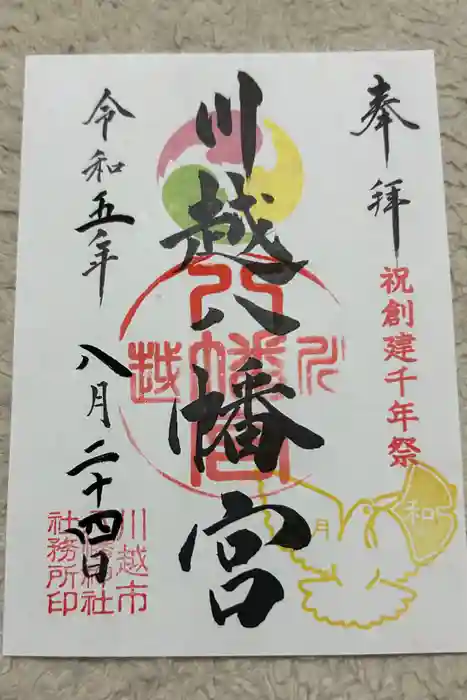 奉拝
祝創建千年祭
川越八幡宮
川越八幡宮
令和五年
八月二十四日
川越市
八幡神社
社務所印
和
月